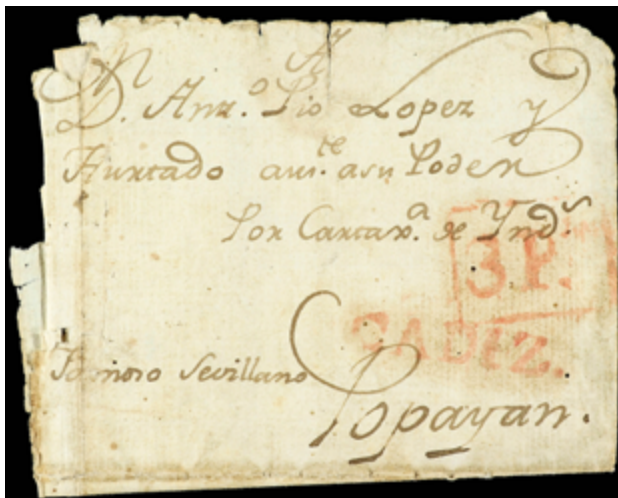 Dn. Anto. Pio Lopez y
Hurtado aute. asu Poder
Por Cartaxa. de Ynds.
3P.
CADIZ.
Sevillano
Popayan.